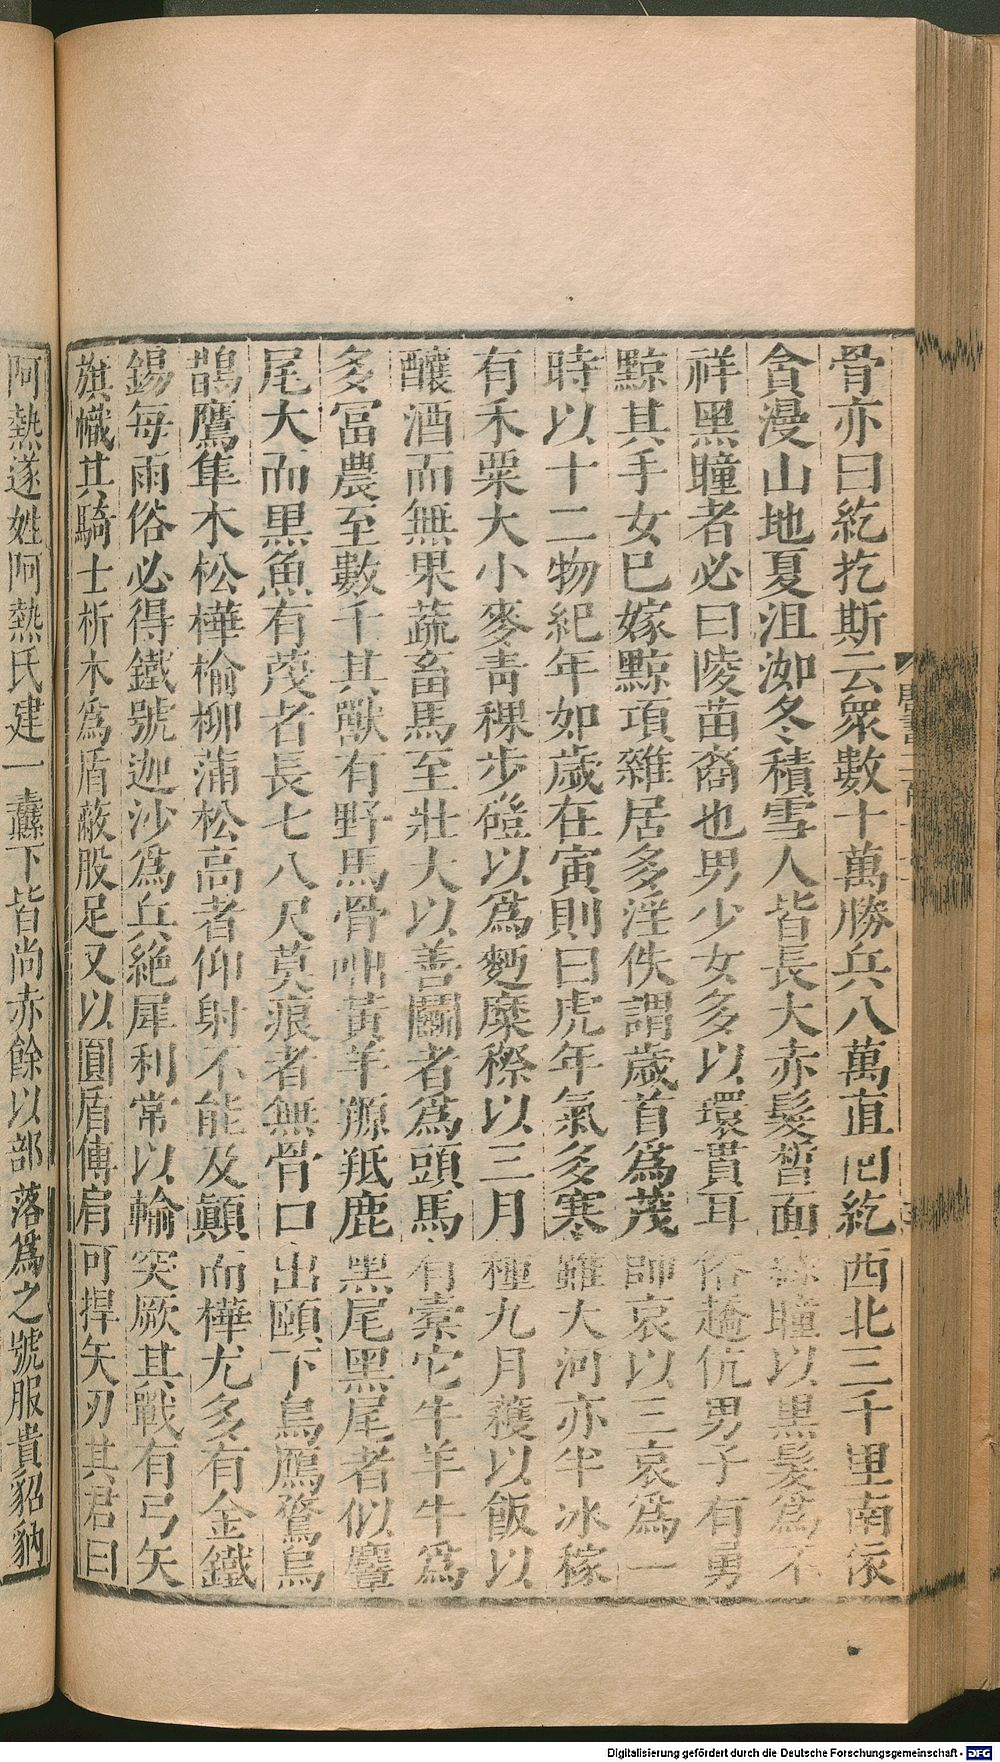 骨亦曰紇扢斯云眾數十萬勝兵八萬直回紇西北三千里南依
貪漫山地夏沮洳冬積雪人皆長大赤髮皙面綠瞳以黑髮為不
祥黑瞳者必曰陵苗裔也男少女多以環貫耳俗趫伉男子有勇
黥其手女已嫁黥項雜居多淫佚謂歲首為茂師哀以三哀為一
時以十二物紀年如歲在寅則曰虎年氣多寒雖大河亦半冰稼
有禾粟大小麥青稞步磑以為麪糜穄以三月種九月穫以飯以
釀酒而無果蔬畜馬至壯大以善鬬者為頭馬有橐它牛羊牛為
多富農至數千其獸有野馬骨咄黃羊羱羝鹿黑尾黑尾者似麞
尾大而黑魚有蔑者長七八尺莫痕者無骨口出頤下鳥鴈鶩烏
鵲鷹隼木松樺榆柳蒲松高者仰射不能及顚而樺尤多有金鐵
錫每雨俗必得鐵號迦沙為兵絕犀利常以輸突厥其戰有弓矢
旗幟其騎士析木為盾蔽股足又以圓盾傅肩可捍矢刃其君曰
阿熱遂姓阿熱氏建一纛下皆尚赤餘以部落為之號服貴貂豽
Digitalisierung gefördert durch die Deutsche Forschungsgemeinschaft - DFG